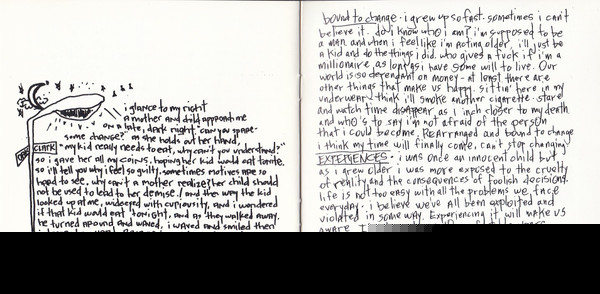 i glance to my right
a mother and child approach me
on a late, dark night. can you spare
some change? as she holds out her hand,
CLARK "my kid really needs to eat, why can't you understand?"
so i gave her all my coins, hoping her kid would eat tonite.
so i'll tell you why i feel so guilty, sometimes motives are so
hard to see. why can't a mother realize? her child should
not be used to lead to her demise! and then the kid
looked up at me, wideeyed with curiousity, and i wondered
if that kid would eat tonight. and as they walked away.
he turned around and waved, i waved and smiled then
bound to change. i grew up so fast. sometimes i can't
believe it. do i know who i am? i'm supposed to be
a man. and when i feel like i'm acting older, i'll just be
a kid and do the things i did. who gives a fuck if i'm a
millionaire as long as i have some will to live. Our
world is so dependant on money - at least there are
other things that make us happy. sittin' here in my
underwear, think i'll smoke another cigarette. stare
and watch time disappear, as i inch closer to my death
and who's to say i'm not afraid of the person
that i could become. Rearranged and bound to change
i think my time will finally come. can't stop changing
EXPERIENCES. i was once an innocent child but
as i grew older i was more exposed to the cruelty
of reality and the consequences of foolish decisions.
life is not too easy with all the problems we face
everyday. i believe we've all been exploited and
violated in some way. Experiencing it will make us
aware